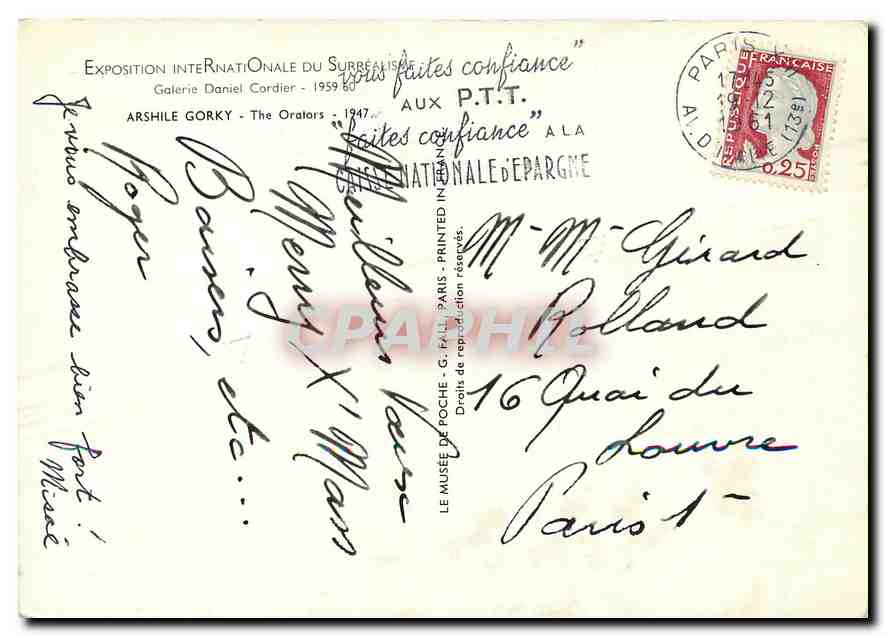 EXPOSITION INTERNATIONALE DU SURRÉALISME
Galerie Daniel Cordier - 1959 60
ARSHILE GORKY - The Orators - 1947
"vous faites confiance"
AUX P.T.T.
"faites confiance" A LA
CAISSE NATIONALE D'EPARGNE
PARIS
17 45
19 12
1961
REPUBLIQUE FRANÇAISE
0,25
Meilleurs Vœux
Merry X'Mass
Baisers, etc...
Roger
Je vous embrasse bien fort !
LE MUSÉE DE POCHE - G. FALL, PARIS - PRINTED IN FRANCE
Droits de reproduction réservés.
M- M- Gérard
Rolland
16 Quai du
Louvre
Paris 1-
CPAPHIL